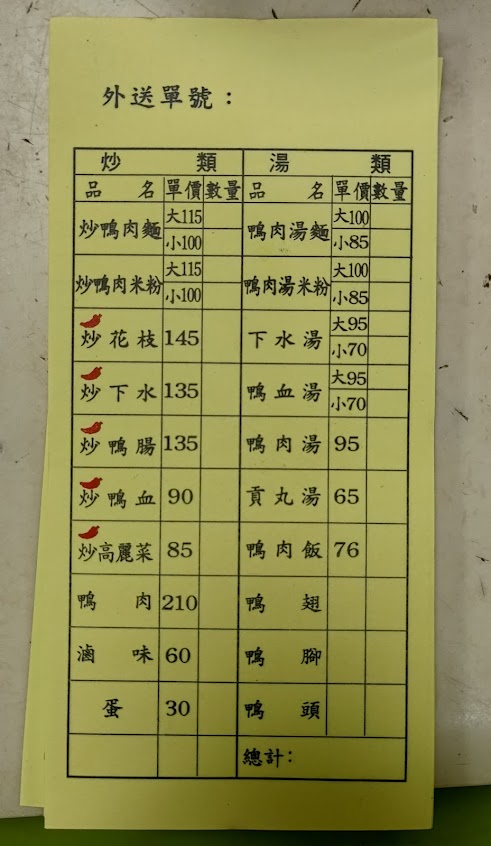 外送單號：
炒類 湯類
品名 單價 數量 品名 單價 數量
炒鴨肉麵 大115 小100 鴨肉湯麵 大100 小85
炒鴨肉米粉 大115 小100 鴨肉湯米粉 大100 小85
炒花枝 145 下水湯 大95 小70
炒下水 135 鴨血湯 大95 小70
炒鴨腸 135 鴨肉湯 95
炒鴨血 90 貢丸湯 65
炒高麗菜 85 鴨肉飯 76
鴨肉 210 鴨翅
滷味 60 鴨腳
蛋 30 鴨頭
總計：